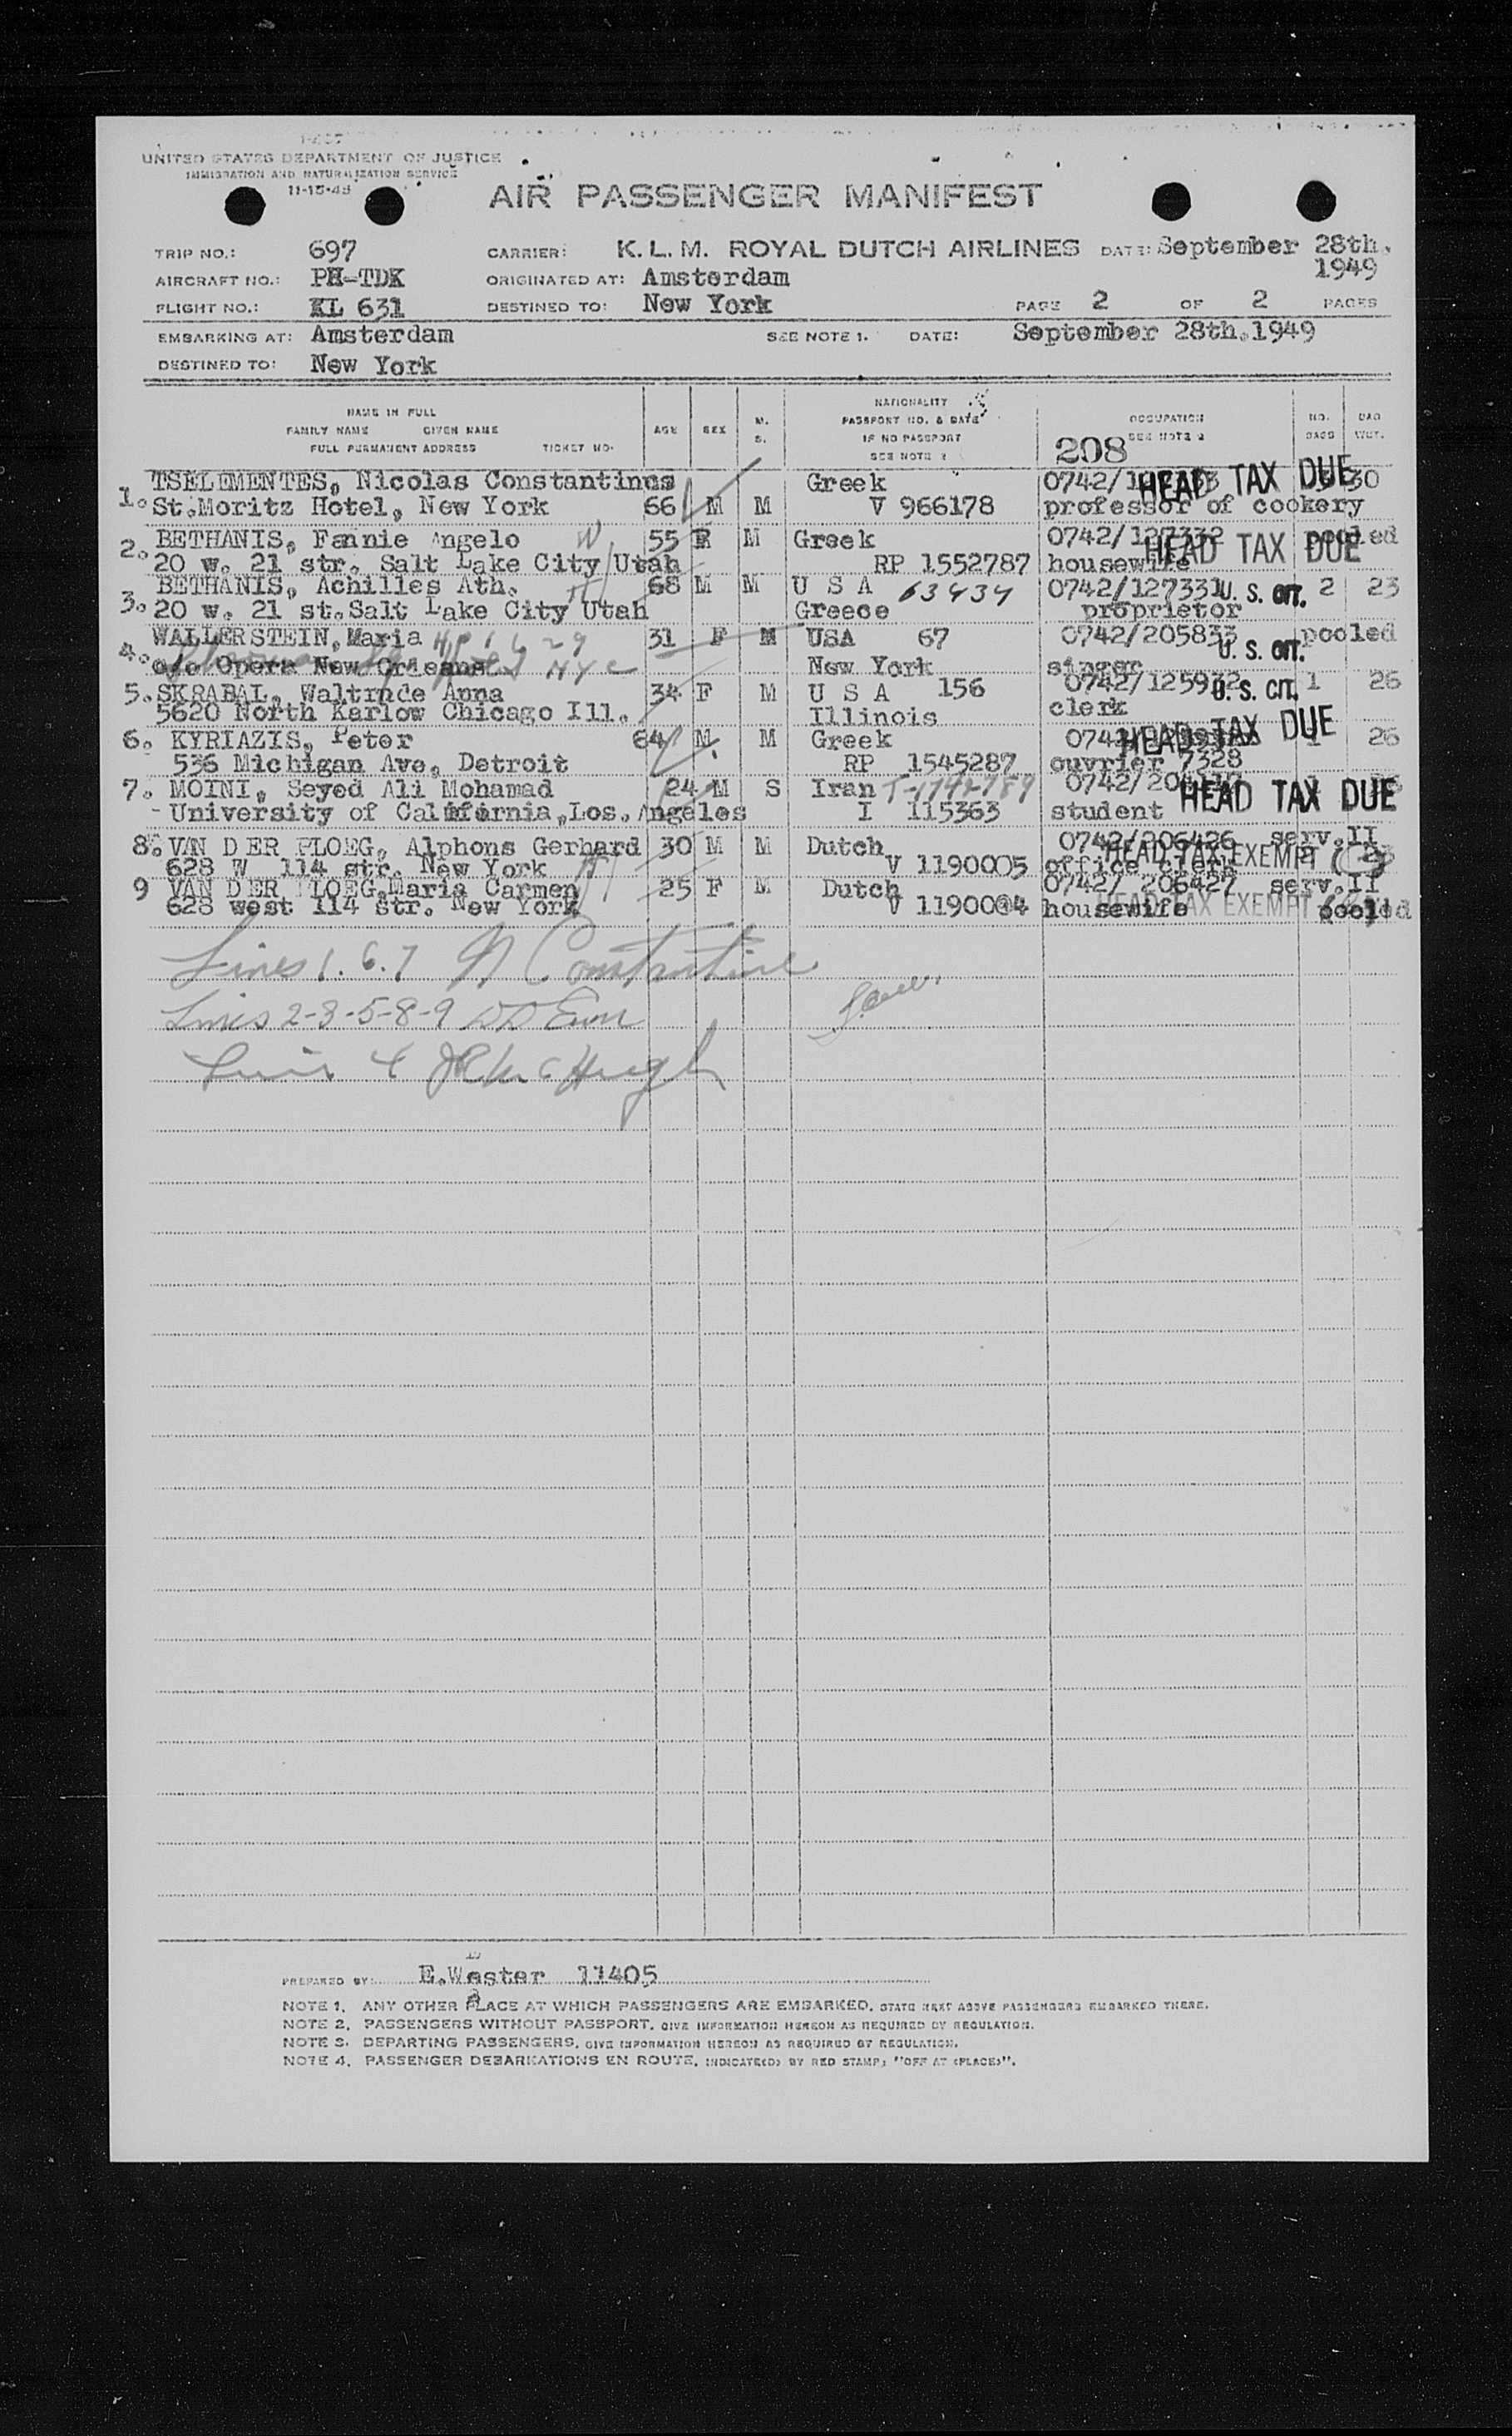 UNITED STATES DEPARTMENT OF JUSTICE
IMMIGRATION AND NATURALIZATION SERVICE
11-15-48
AIR PASSENGER MANIFEST
TRIP NO.: 697 CARRIER: K.L.M. ROYAL DUTCH AIRLINES DATE: September 28th. 1949
AIRCRAFT NO.: PH-TDK ORIGINATED AT: Amsterdam
FLIGHT NO.: KL 631 DESTINED TO: New York PAGE 2 OF 2 PAGES
EMBARKING AT: Amsterdam SEE NOTE 1. DATE: September 28th.1949
DESTINED TO: New York
NAME IN FULL
FAMILY NAME GIVEN NAME
FULL PERMANENT ADDRESS TICKET NO.
AGE SEX M. S.
NATIONALITY
PASSPORT NO. & DATE
IF NO PASSPORT
SEE NOTE 2
OCCUPATION
SEE NOTE 2
208
NO. BAGS
BAG WGT.
TSELEMENTES, Nicolas Constantinus Greek HEAD TAX DUE 30
1. St.Moritz Hotel, New York 66 M M V 966178 professor of cookery
2. BETHANIS, Fannie Angelo 55 F M Greek 0742/127332 pooled
20 w. 21 str. Salt Lake City Utah RP 1552787 housewife HEAD TAX DUE
BETHANIS, Achilles Ath. 68 M M U S A 63434 0742/127331 U. S. CIT. 2 23
3. 20 w. 21 st.Salt Lake City Utah Greece proprietor
WALLERSTEIN, Maria 31 F M USA 67 0742/205833 pooled
4. c/o Opera New Orleans NYC New York singer U. S. CIT.
5. SKRABAL, Waltrude Anna 34 F M U S A 156 0742/125932 U. S. CIT. 1 26
5620 North Karlow Chicago Ill. Illinois clerk
6. KYRIAZIS, Peter 64 M M Greek HEAD TAX DUE 1 26
536 Michigan Ave, Detroit RP 1545287 ouvrier 7328
7. MOINI, Seyed Ali Mohamad 24 M S Iran T-1742789 HEAD TAX DUE
- University of California, Los. Angeles I 115363 student
8. VAN DER PLOEG, Alphons Gerhard 30 M M Dutch 0742/206426 serv.II
628 W 114 str. New York V 1190005 office clerk HEAD TAX EXEMPT
9 VAN DER PLOEG, Maria Carmen 25 F M Dutch 0742/ 206427 serv.II
628 west 114 str. New York V 1190004 housewife HEAD TAX EXEMPT pooled
Lines 1. 6. 7 N Constantine
Lines 2-3-5-8-9
PREPARED BY: E.Wester 11405
NOTE 1. ANY OTHER PLACE AT WHICH PASSENGERS ARE EMBARKED, STATE NEXT ABOVE PASSENGERS EMBARKED THERE.
NOTE 2. PASSENGERS WITHOUT PASSPORT, GIVE INFORMATION HEREON AS REQUIRED BY REGULATION.
NOTE 3. DEPARTING PASSENGERS, GIVE INFORMATION HEREON AS REQUIRED BY REGULATION.
NOTE 4. PASSENGER DEBARKATIONS EN ROUTE, INDICATE(D) BY RED STAMP; "OFF AT (PLACE)".